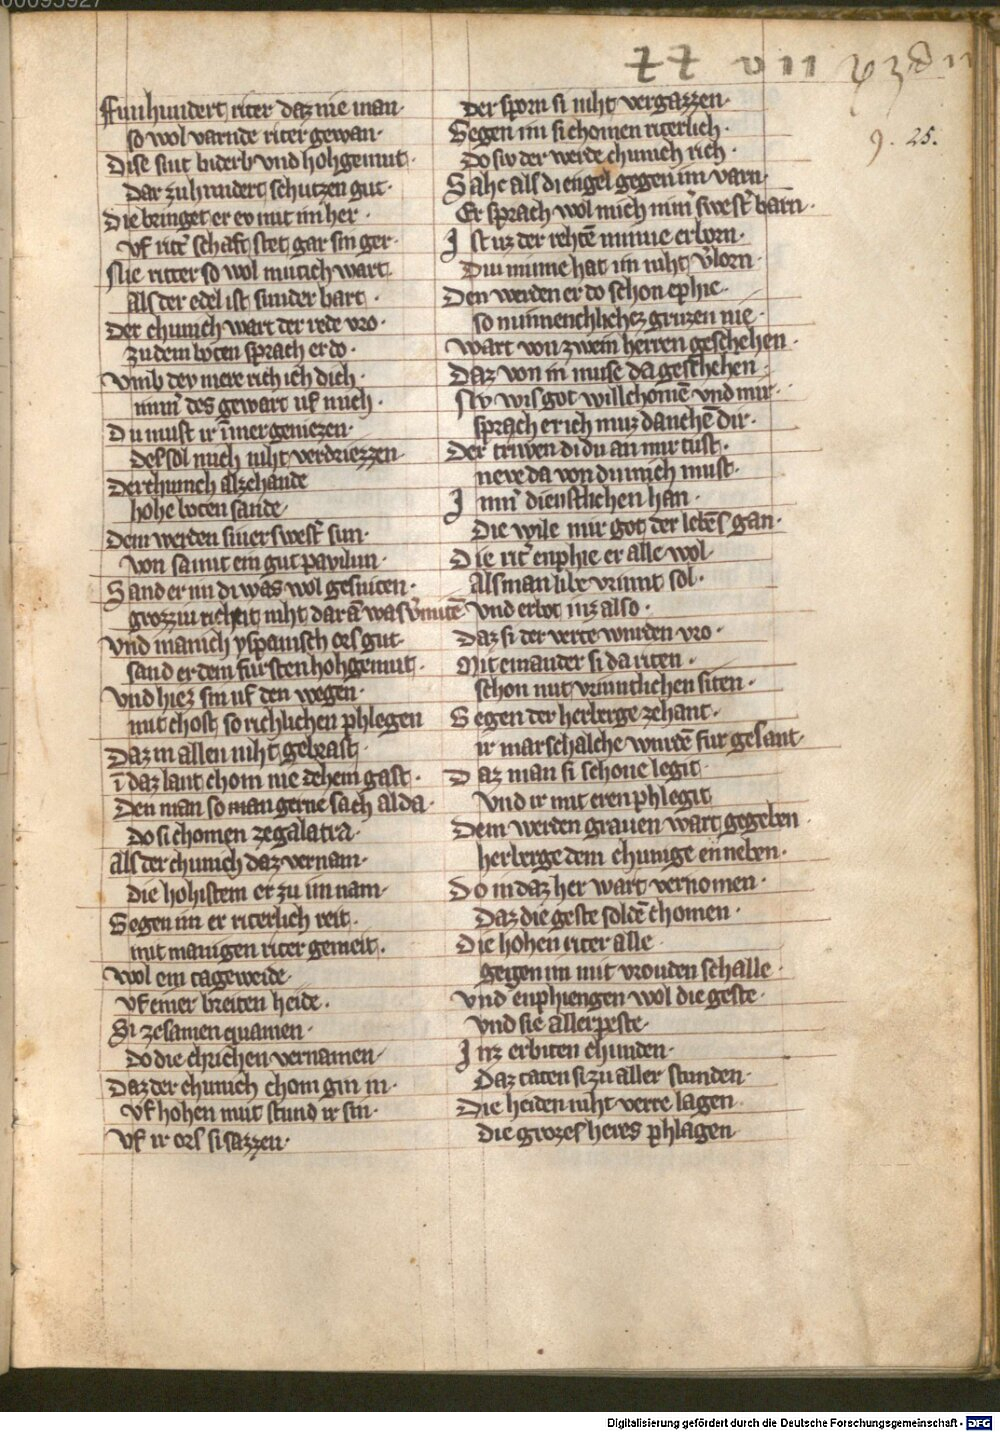 00095927
77 vii
9. 25.
Funhundert riter daz nie man·
so wol varnde riter gewan·
Dise sint biderb vnd hohgemut·
Dar zu hundert schutzen gut·
Die bringet er ev mit im her·
vf rit͛ schaft stet gar sin ger·
Nie ritter so wol mutich wart
Als der edel ist sunder bart·
Der chunich wart der rede vro·
zu dem boten sprach er do·
Vmb dev mere rich ich dich·
nim͛ des gewart uf mich·
Du must ir im̄er geniezen·
Des sol mich niht verdriezzen·
Der chunich alzehande
hohe boten sande·
Dem werden siner swest͛ sun·
von samit ein gut pavilun·
Sand er im di was wol gesniten·
grozziu richeit niht dar an̄ was v͛miten̄
Vnd manich yspanisch ors gut·
sand er dem fursten hohgemut·
Vnd hiez sin uf den wegen·
mit chost so richlichen phlegen
Daz in allen niht gebrast·
in̄ daz lant chom nie dehein gast·
Den man so man gerne sach alda·
Do si chomen ze galatra·
Als der chunich daz vernam·
Die hohisten er zu im nam·
Gegen im er riterlich reit·
mit manigen riter gemeit·
Wol ein tageweide·
vf einer breiten heide·
Si zesamen quamen·
Do die chrichen vernamen·
Daz der chunich chom gin in·
Vf hohen mut stund ir sin·
Vf ir ors si sazzen·
Der sporn si niht vergazzen·
Gegen im si chomen riterlich·
Do siv der werde chunich rich·
Sahe als di engel gegen im varn·
Er sprach wol mich min͛ swest͛ barn·
Ist uz der rehten̄ minne erborn·
Diu minne hat im niht v͛lorn·
Den werden er do schon ephie·
so minnenchlichez gruzen nie·
Wart von zwein herren geschehen·
Daz von in muse da geschehen·
Siv wis got willechomen̄ vnd mir·
sprach er ich muz danchen̄ dir·
Der triwen di du an mir tust·
neve da von du mich must·
I min͛ dienstlichen han·
Die wile mir got der lebens̄ gan·
Die rit͛ enphie er alle wol
Als man libe vriunt sol·
Vnd erbot inz also·
Daz si der verte wurden vro·
Mit einander si da riten·
schon mit vriuntlichen siten·
Gegen der herberge zehant·
ir marschalche wurden̄ fur gesant·
Daz man si schone legit
Vnd ir mit eren phlegit
Dem werden grauen wart gegeben
herberge dem chunige enneben·
Do in daz her wart vernomen·
Daz die geste solden̄ chomen·
Die hohen riter alle·
Geigen im mit vrouden schalle·
Vnd enphiengen wol die geste·
Vnd sie aller peste·
I nz erbiten chunden·
Daz taten si zu aller stunden·
Die heiden niht verre lagen
Die grozes heres phlagen
Digitalisierung gefördert durch die Deutsche Forschungsgemeinschaft - DFG